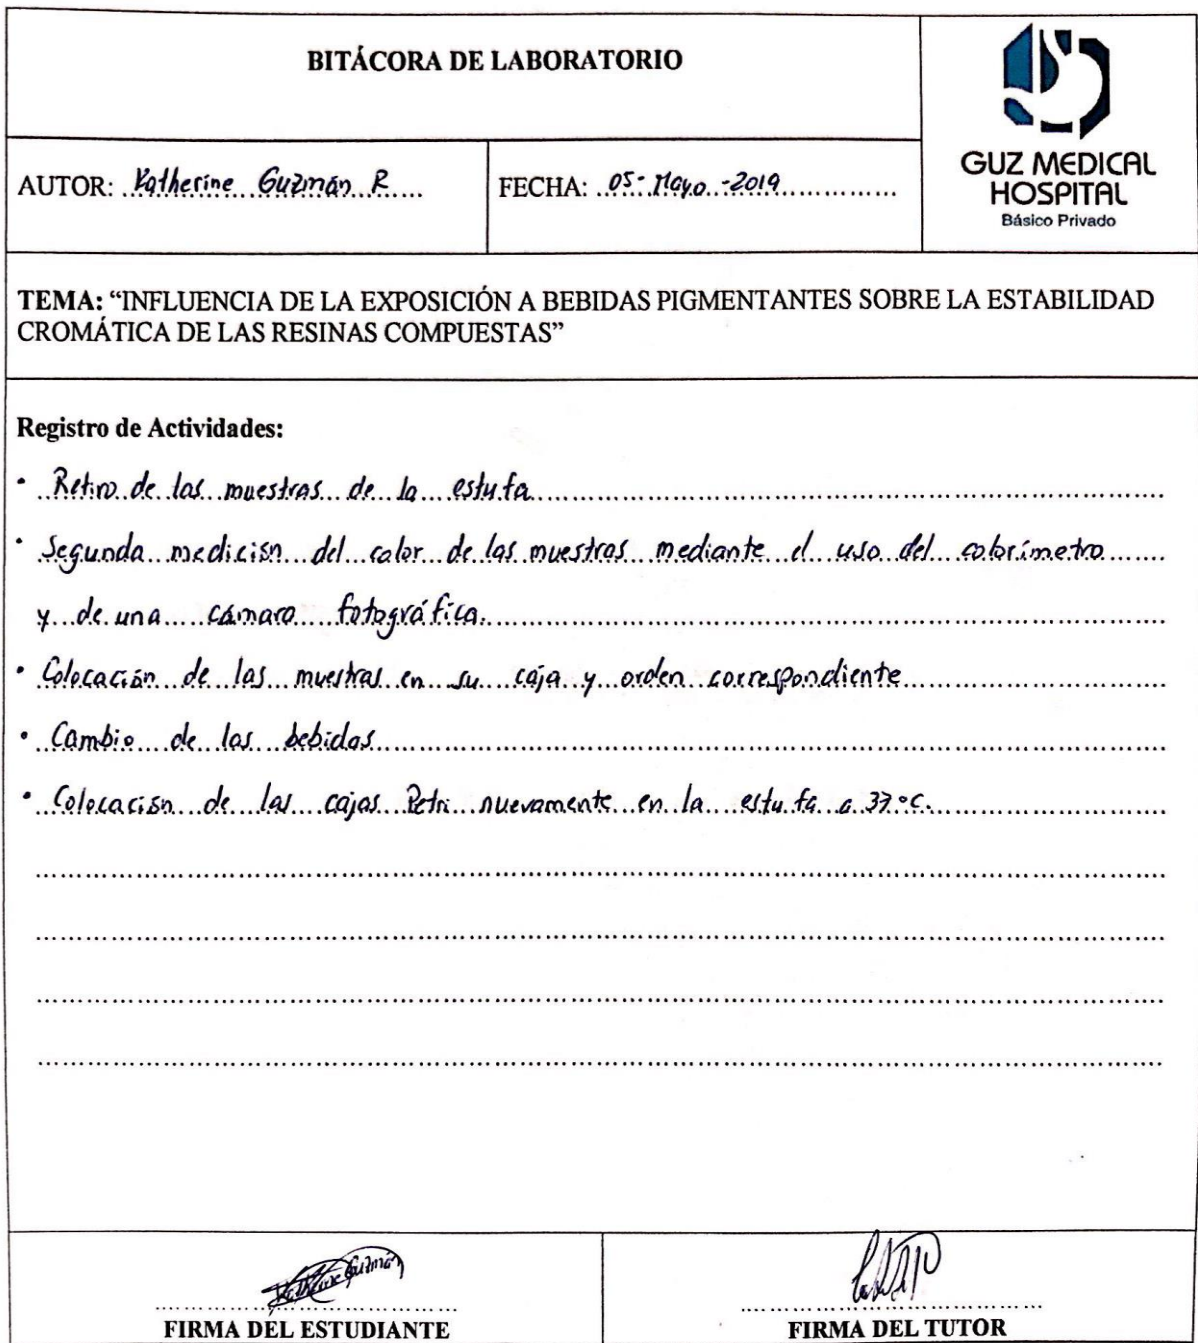 BITÁCORA DE LABORATORIO
GUZ MEDICAL
HOSPITAL
Básico Privado
AUTOR: Katherine Guzmán R
FECHA: 05-Mayo-2019
TEMA: “INFLUENCIA DE LA EXPOSICIÓN A BEBIDAS PIGMENTANTES SOBRE LA ESTABILIDAD
CROMÁTICA DE LAS RESINAS COMPUESTAS”
Registro de Actividades:
• Retiro de las muestras de la estufa
• Segunda medición del color de las muestras mediante el uso del colorímetro
y de una cámara fotográfica.
• Colocación de las muestras en su caja y orden correspondiente
• Cambio de las bebidas
• Colocación de las cajas Petri nuevamente en la estufa a 37°C.
Katherine Guzmán
FIRMA DEL ESTUDIANTE
FIRMA DEL TUTOR